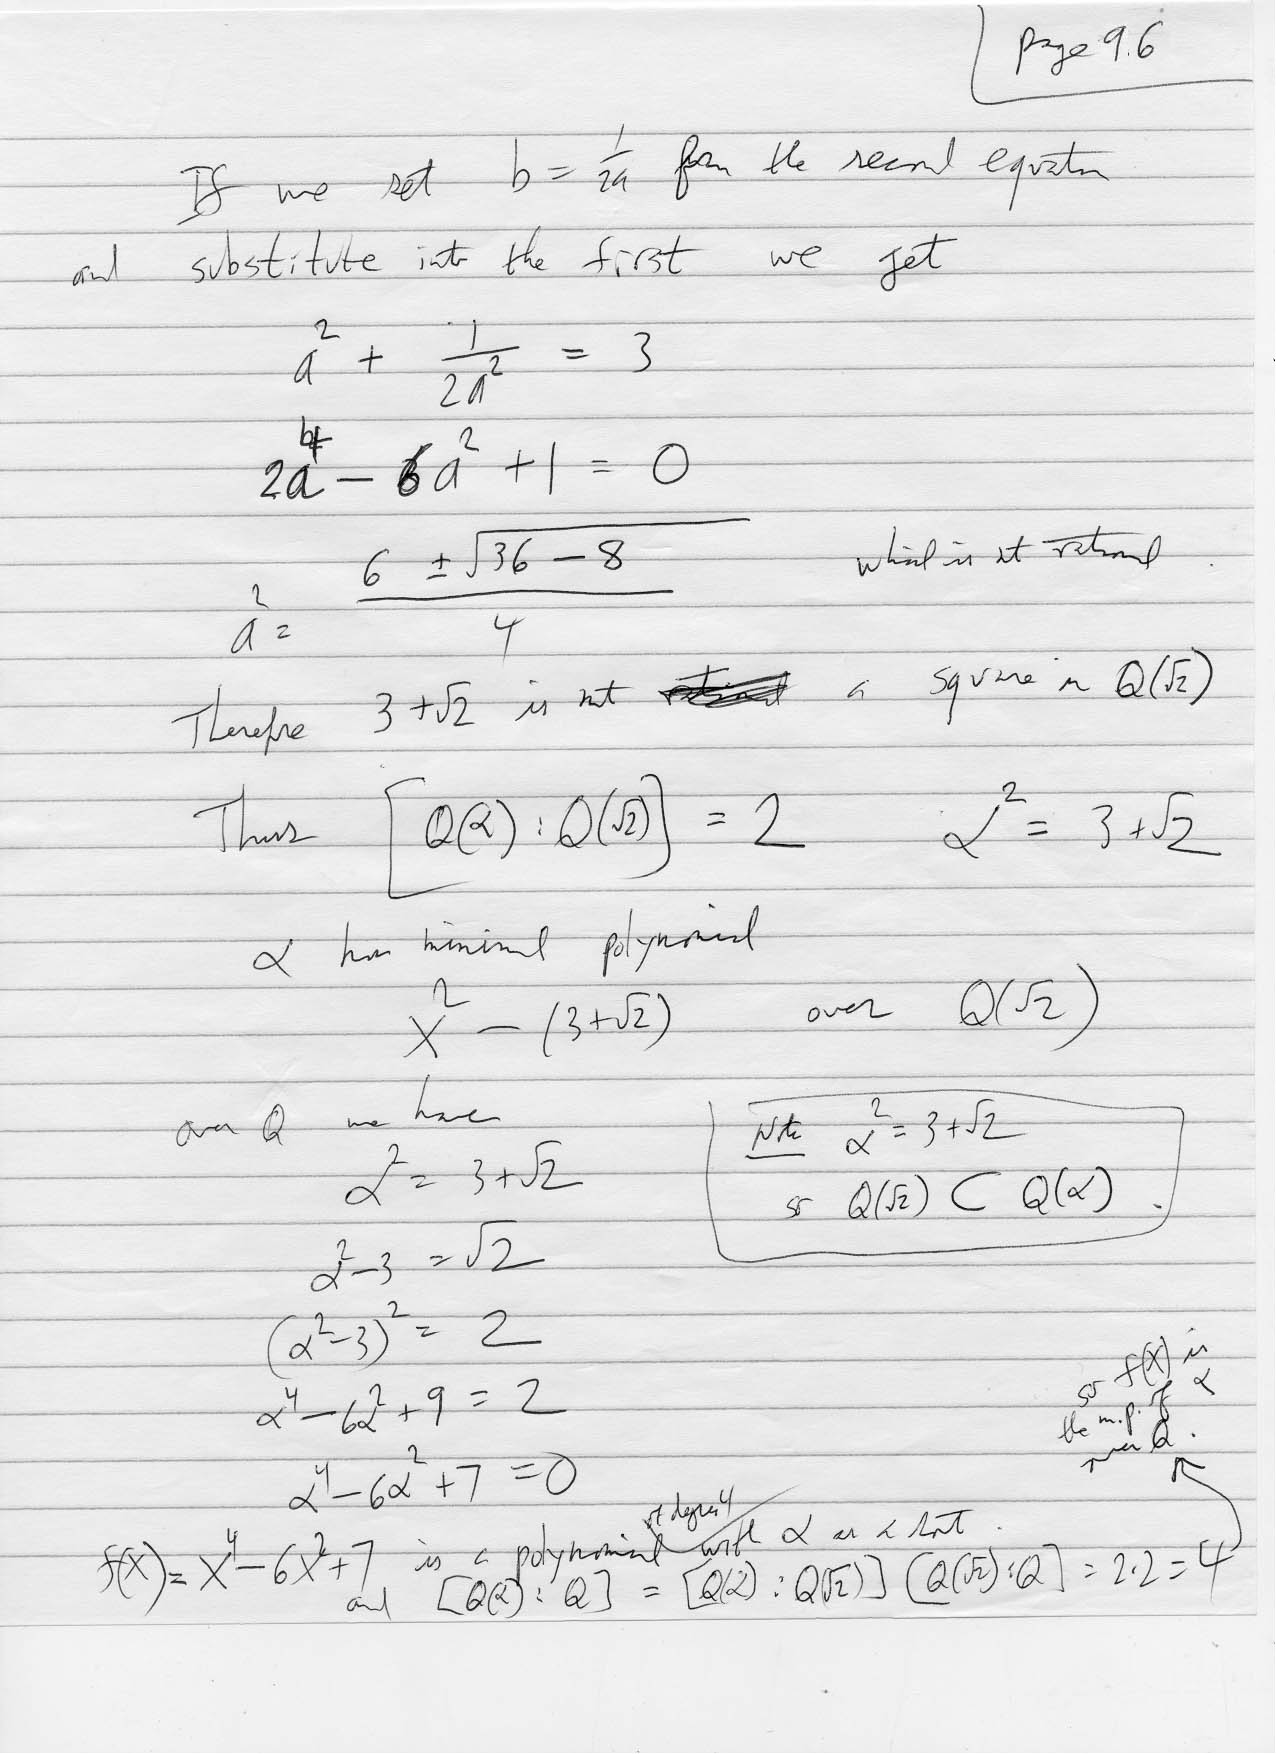 page 9.6
If we set b = 1/2a from the second equation
and substitute into the first we get
a² + 1/2a² = 3
2a⁴ − 6a² + 1 = 0
a² = (6 ± √(36 − 8))/4 which is not rational.
Therefore 3+√2 is not a square in Q(√2)
Thus [Q(α) : Q(√2)] = 2 α² = 3+√2
α has minimal polynomial
X² − (3+√2) over Q(√2)
over Q we have
α² = 3+√2
Note α² = 3+√2
so Q(√2) ⊂ Q(α).
α²−3 = √2
(α²−3)² = 2
α⁴−6α²+9 = 2
α⁴−6α²+7 = 0
f(X) = X⁴−6X²+7 is a polynomial of degree 4 with α as a root.
and [Q(α) : Q] = [Q(α) : Q(√2)] [Q(√2) : Q] = 2·2 = 4
so f(X) is
the m.p. of α
over Q.